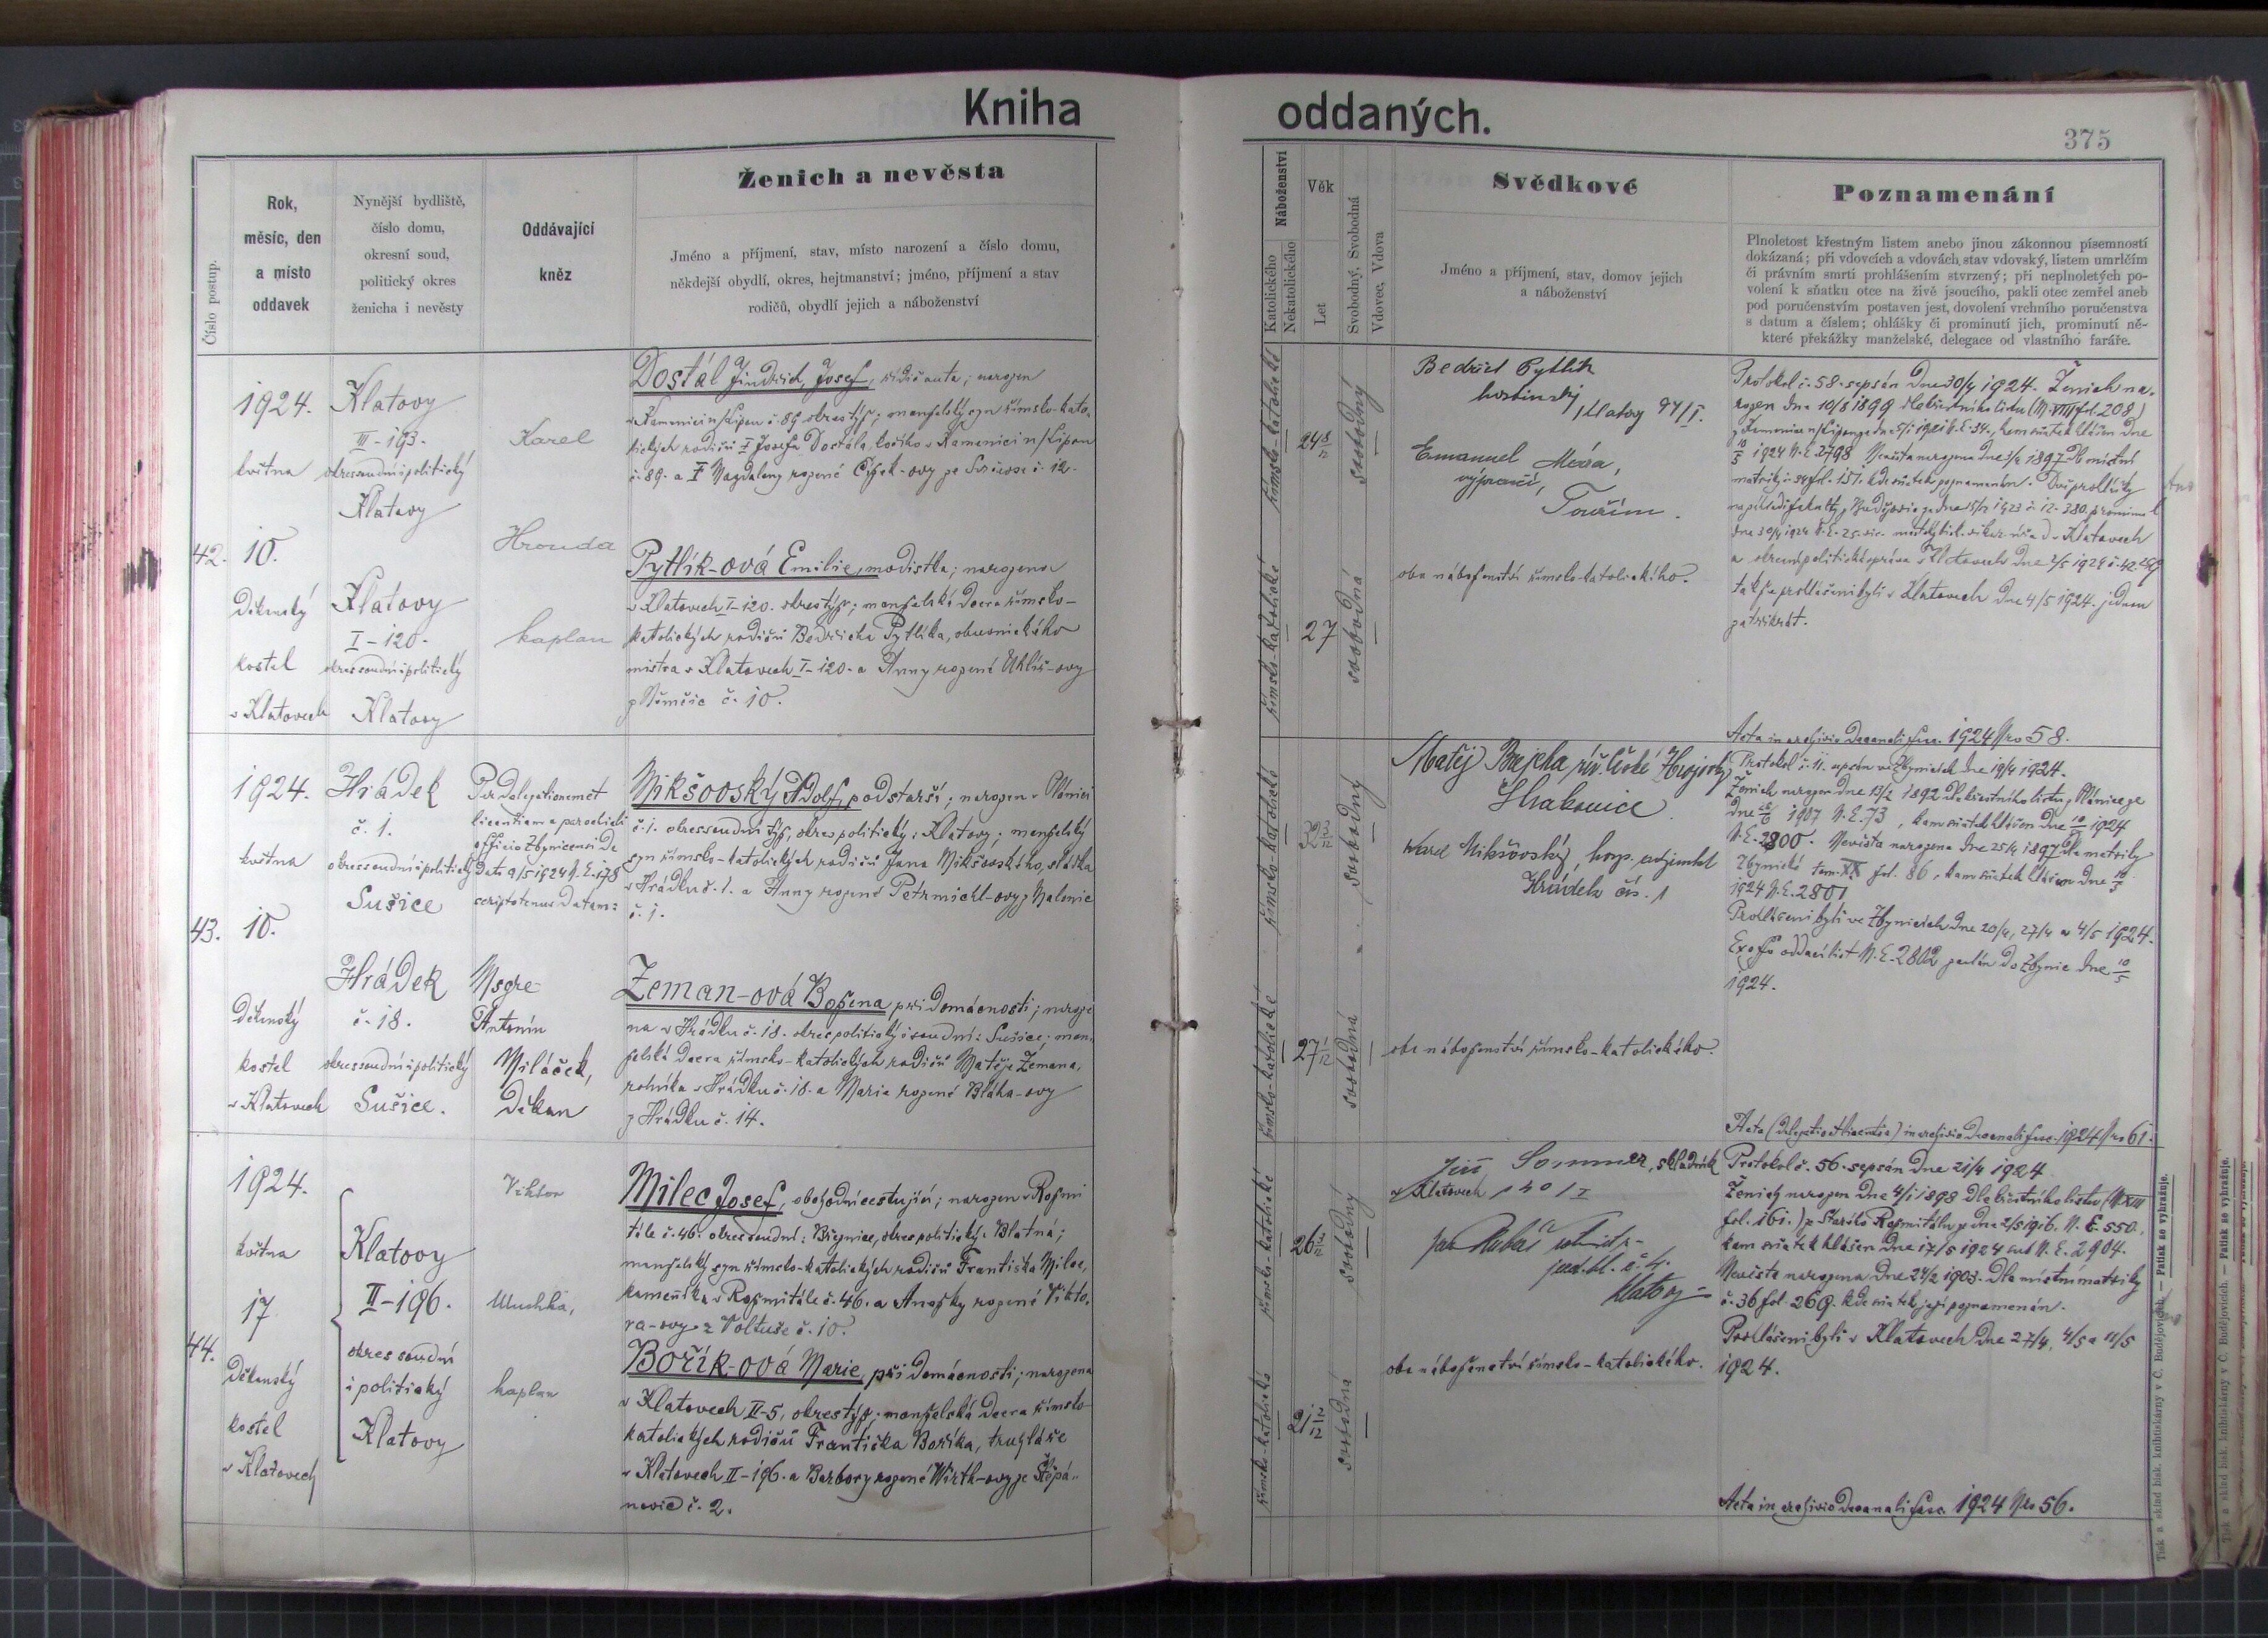 Kniha
oddaných.
375
Číslo postup.
Rok,
měsíc, den
a místo
oddavek
Nynější bydliště,
číslo domu,
okresní soud,
politický okres
ženicha i nevěsty
Oddávající
kněz
Ženich a nevěsta
Jméno a příjmení, stav, místo narození a číslo domu,
někdejší obydlí, okres, hejtmanství; jméno, příjmení a stav
rodičů, obydlí jejich a náboženství
Náboženství
Katolického
Nekatolického
Věk
Let
Svobodný, Svobodná
Vdovec, Vdova
Svědkové
Jméno a příjmení, stav, domov jejich
a náboženství
Poznamenání
Plnoletost křestným listem anebo jinou zákonnou písemností
dokázaná; při vdovcích a vdovách stav vdovský, listem umrlčím
či právním smrti prohlášením stvrzený; při neplnoletých po-
volení k sňatku otce na živě jsoucího, pakli otec zemřel aneb
pod poručenstvím postaven jest, dovolení vrchního poručenstva
s datum a číslem; ohlášky či prominutí jich, prominutí ně-
které překážky manželské, delegace od vlastního faráře.
42.
1924.
května
10.
Děkanský
kostel
v Klatovech
Klatovy
III-193.
okres soudní i politický
Klatovy
Klatovy
I-120.
okres soudní i politický
Klatovy
Karel
Hrouda
kaplan
Dostál Jindřich, Josef, řidič auta; narozen
v Kamenici n/Lipou č. 89 okres týž; manželský syn římsko-kato-
lických rodičů † Josefa Dostála, v Kamenici n/Lipou
č. 89. a † Magdaleny rozené
Pytlík-ová Emilie, modistka; narozena
v Klatovech I-120. okres týž; manželská dcera římsko-
katolických rodičů Bedřicha Pytlíka, obuvnického
mistra v Klatovech I-120. a Anny rozené Uhlíř-ovy
z Němčic č. 10.
římsko-katolické
24 8/12
svobodný
římsko-katolické
27
svobodná
Bedřich Pytlík
hostinský, Klatovy 94/I.
Emanuel
Touřim.
oba náboženství římsko-katolického.
Protokol č. 58. sepsán dne 30/4 1924. Ženich na-
rozen dne 10/8 1899 dle křestního listu (N. VIII fol. 208)
1924 N.E. 2798 Nevěsta narozena dne 1897 dle místní
matriky fol. 151. kde sňatek poznamenán.
a okresní politická správa v Klatovech dne 2/5 1924
prohlášeni byli v Klatovech dne 4/5 1924. jednou
za třikrát.
Acta in archivio decanali fasc. 1924 Nro 58.
43.
1924.
května
10.
Děkanský
kostel
v Klatovech
Hrádek
č. 1.
okres soudní i politický
Sušice
Hrádek
č. 18.
okres soudní i politický
Sušice.
Per delegationem et
licentiam a parochiali
officio Zbynicensi de
dato 9/5 1924 N.E. 178
scriptotenus datam:
Msgre
Antonín
Miláček,
děkan
Mikšovský Adolf, podstarší; narozen v Plánici
č. 1. okres soudní týž, okres politický: Klatovy; manželský
syn římsko-katolických rodičů Jana Mikšovského, sládka
v Hrádku č. 1. a Anny rozené Petrmichl-ovy z Malonic
č. 1.
Zeman-ová Božena, při domácnosti; naroze-
na v Hrádku č. 18. okres politický i soudní: Sušice; man-
želská dcera římsko-katolických rodičů Matěje Zemana,
rolníka v Hrádku č. 18. a Marie rozené Bláha-ovy
z Hrádku č. 14.
římsko-katolické
32 3/12
svobodný
římsko-katolické
27 1/12
svobodná
Matěj
Karel Mikšovský, hosp. adjunkt
Hrádek čís. 1
oba náboženství římsko-katolického.
Protokol č. 11. sepsán ve Zbynicích dne 19/4 1924.
Ženich narozen dne 13/2 1892 dle křestního listu z Plánice ze
dne 1907 N.E. 73, kam sňatek hlášen dne 10/5 1924
N.E. 2800. Nevěsta narozena dne 25/4 1897 dle matriky
Zbynické tom. XX fol. 86, kam sňatek hlášen dne 10/5
1924 N.E. 2801
Prohlášeni byli ve Zbynicích dne 20/4, 27/4 a 4/5 1924.
Ex offo oddací list N.E. 2802 zaslán do Zbynic dne 10/5
1924.
Acta (delegatio et licentia) in archivio decanali fasc. 1924 Nro 61.
44.
1924.
května
17
Děkanský
kostel
v Klatovech
Klatovy
II-196.
okres soudní
i politický
Klatovy
Viktor
Muchka,
kaplan
Milec Josef, obchodní cestující; narozen v Rožmi-
tále č. 46. okres soudní: Březnice, okres politický: Blatná;
manželský syn římsko-katolických rodičů Františka Milce,
kameníka v Rožmitále č. 46. a Anežky rozené Vikto-
ra-ovy z Voltuše č. 10.
Bořík-ová Marie, při domácnosti; narozena
v Klatovech II-5, okres týž; manželská dcera římsko-
katolických rodičů Františka Boříka, truhláře
v Klatovech II-196. a Barbory rozené Wirth-ovy ze Štěpá-
novic č. 2.
římsko-katolické
26 3/12
svobodný
římsko-katolické
21 2/12
svobodná
Jiří Sommer, skladník
v Klatovech 140/I
Klatovy
oba náboženství římsko-katolického.
Protokol č. 56. sepsán dne 21/4 1924
Ženich narozen dne 4/1 1898 dle křestního listu (N. XIII
fol. 161.) ze Starého Rožmitálu z dne 2/5 1916. N.E. 550,
kam sňatek hlášen dne 17/5 1924 sub N.E. 2904.
Nevěsta narozena dne 24/2 1903. dle místní matriky
č. 36 fol. 269. kde sňatek její poznamenán.
Prohlášeni byli v Klatovech dne 27/4, 4/5 a 11/5
1924.
Acta in archivio decanali fasc. 1924 Nro 56.
Tisk a sklad bisk. knihtiskárny v Č. Budějovicích. — Patisk se vyhražuje.